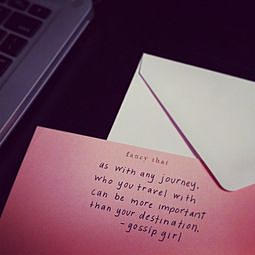 fancy that
as with any journey,
who you travel with
can be more important
than your destination.
-gossip girl